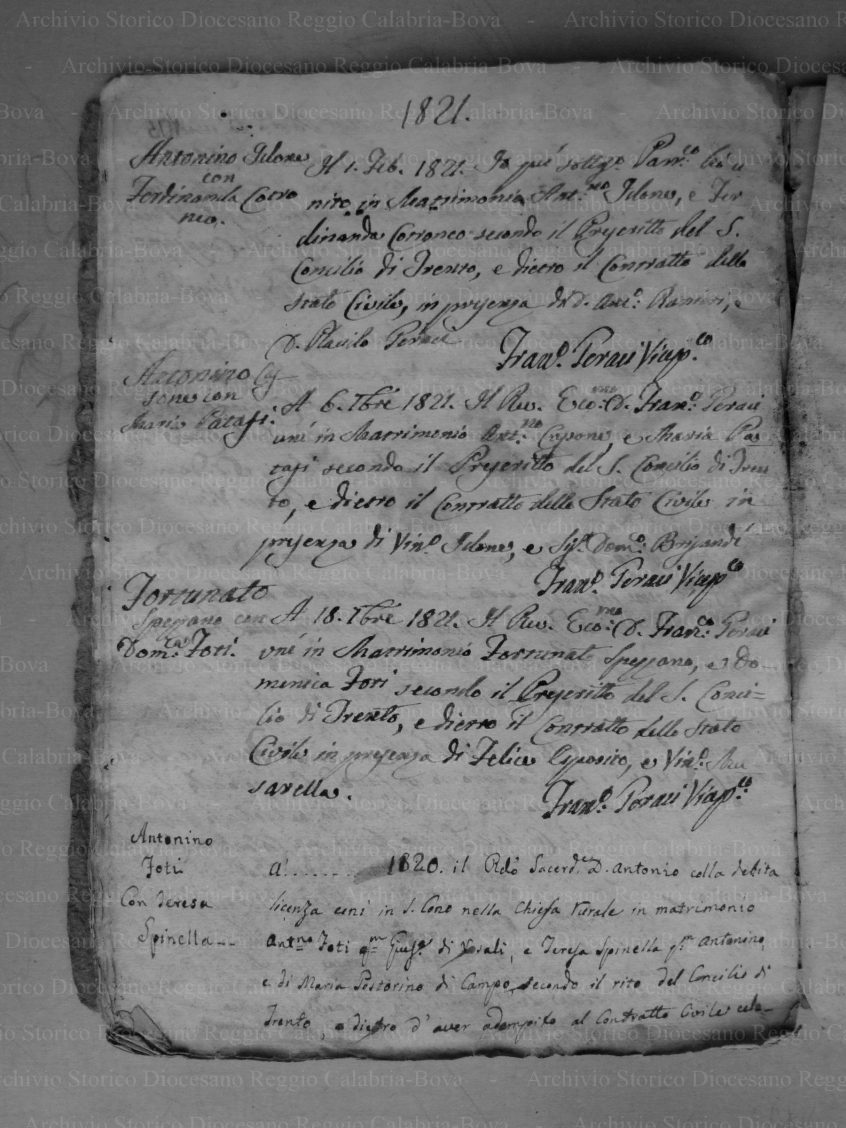 1821.
Antonino Idone
con
Ferdinanda Cotro
neo.
Il 1. Feb. 1821. Io qui sottoo. Parr.co ho u
nito in Matrimonio Ant.no Idone, e Fer
dinanda Cotroneo secondo il Prescritto del S.
Concilio di Trento, e dietro il Contratto dello
Stato Civile, in presenza di D. Ant.o Ranieri, e
D. Placido Peraci
Fran.o Peraci Vicep.co
Antonino Ca
pone con
Maria Patafi.
A 6. 7bre 1821. Il Rev. Eco.mo D. Fran.o Peraci
uné in Matrimonio Ant.no Capone, e Maria Pa
tafi secondo il Prescritto del S. Concilio di Tren
to, e dietro il Contratto dello Stato Civile in
presenza di Vin.o Idone, e Dom.o Brigandì
Fran.o Peraci Vicep.co
Fortunato
Spezzano con
Dom.ca Foti.
A 18. 7bre 1821. Il Rev. Eco.mo D. Fran.co Peraci
uné in Matrimonio Fortunato Spezzano, e Do
menica Foti secondo il Prescritto del S. Conci-
lio di Trento, e dietro il Contratto dello Stato
Civile in presenza di Felice Esposito, e Vin.o Mu
sarella.
Fran.o Peraci Vicep.co
Antonino
Foti
Con Teresa
Spinella
A'........ 1820. il Rdo Sacerd. D. Antonio colla debita
licenza unì in S. Cono nella Chiesa rurale in matrimonio
Ant.no Foti q.m Gius.e di Rosalì, e Teresa Spinella q.m Antonino,
e di Maria Pestorino di Campo, secondo il rito del Concilio di
Trento, e dietro d'aver adempito al Contratto Civile cele-
Archivio Storico Diocesano Reggio Calabria-Bova